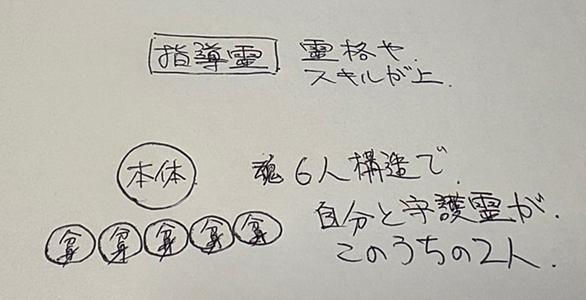 指導霊
霊格や
スキルが上.
本体
魂6人構造で.
自分と守護霊が.
このうちの2人.